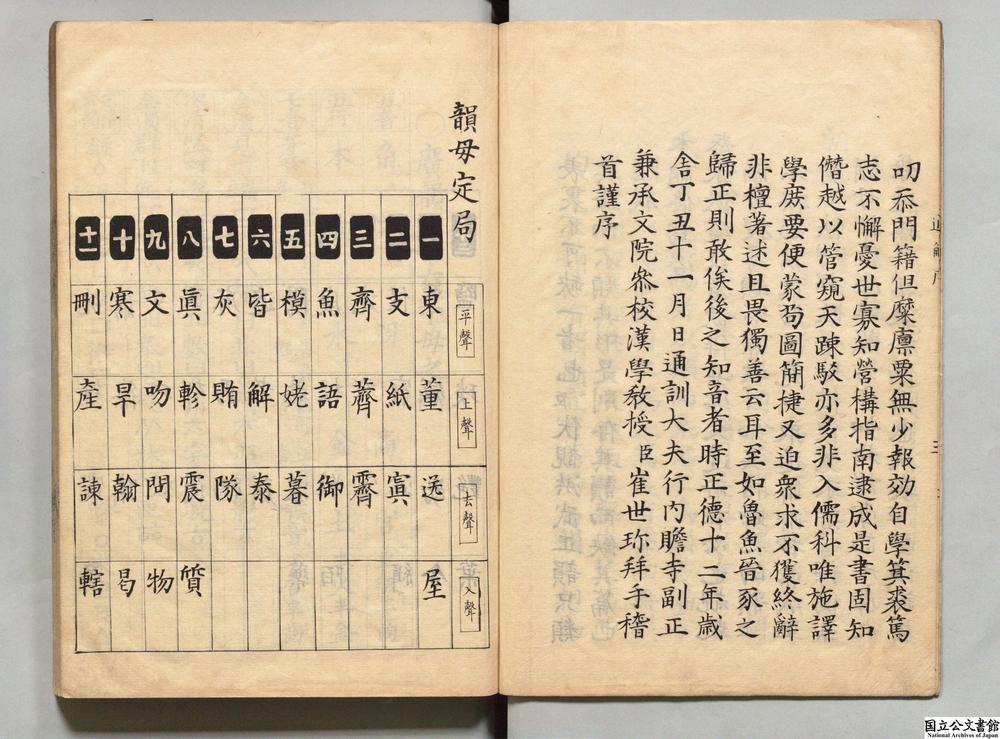 叨忝門籍但糜廩粟無少報効自學箕裘篤
志不懈憂世寡知營構指南逮成是書固知
僭越以管窺天踈駁亦多非入儒科唯施譯
學庶要便蒙匇圖簡捷又迫衆求不獲終辭
非檀著述且畏獨善云耳至如魯魚晉豕之
歸正則敢俟後之知音者時正德十二年歲
舍丁丑十一月日通訓大夫行內贍寺副正
兼承文院叅校漢學敎授臣崔世珎拜手稽
首謹序
韻母定局
平聲 上聲 去聲 入聲
一 東 董 送 屋
二 支 紙 寘
三 齊 薺 霽
四 魚 語 御
五 模 姥 暮
六 皆 解 泰
七 灰 賄 隊
八 眞 軫 震 質
九 文 吻 問 物
十 寒 旱 翰 曷
十一 刪 產 諫 轄
国立公文書館
National Archives of Japan